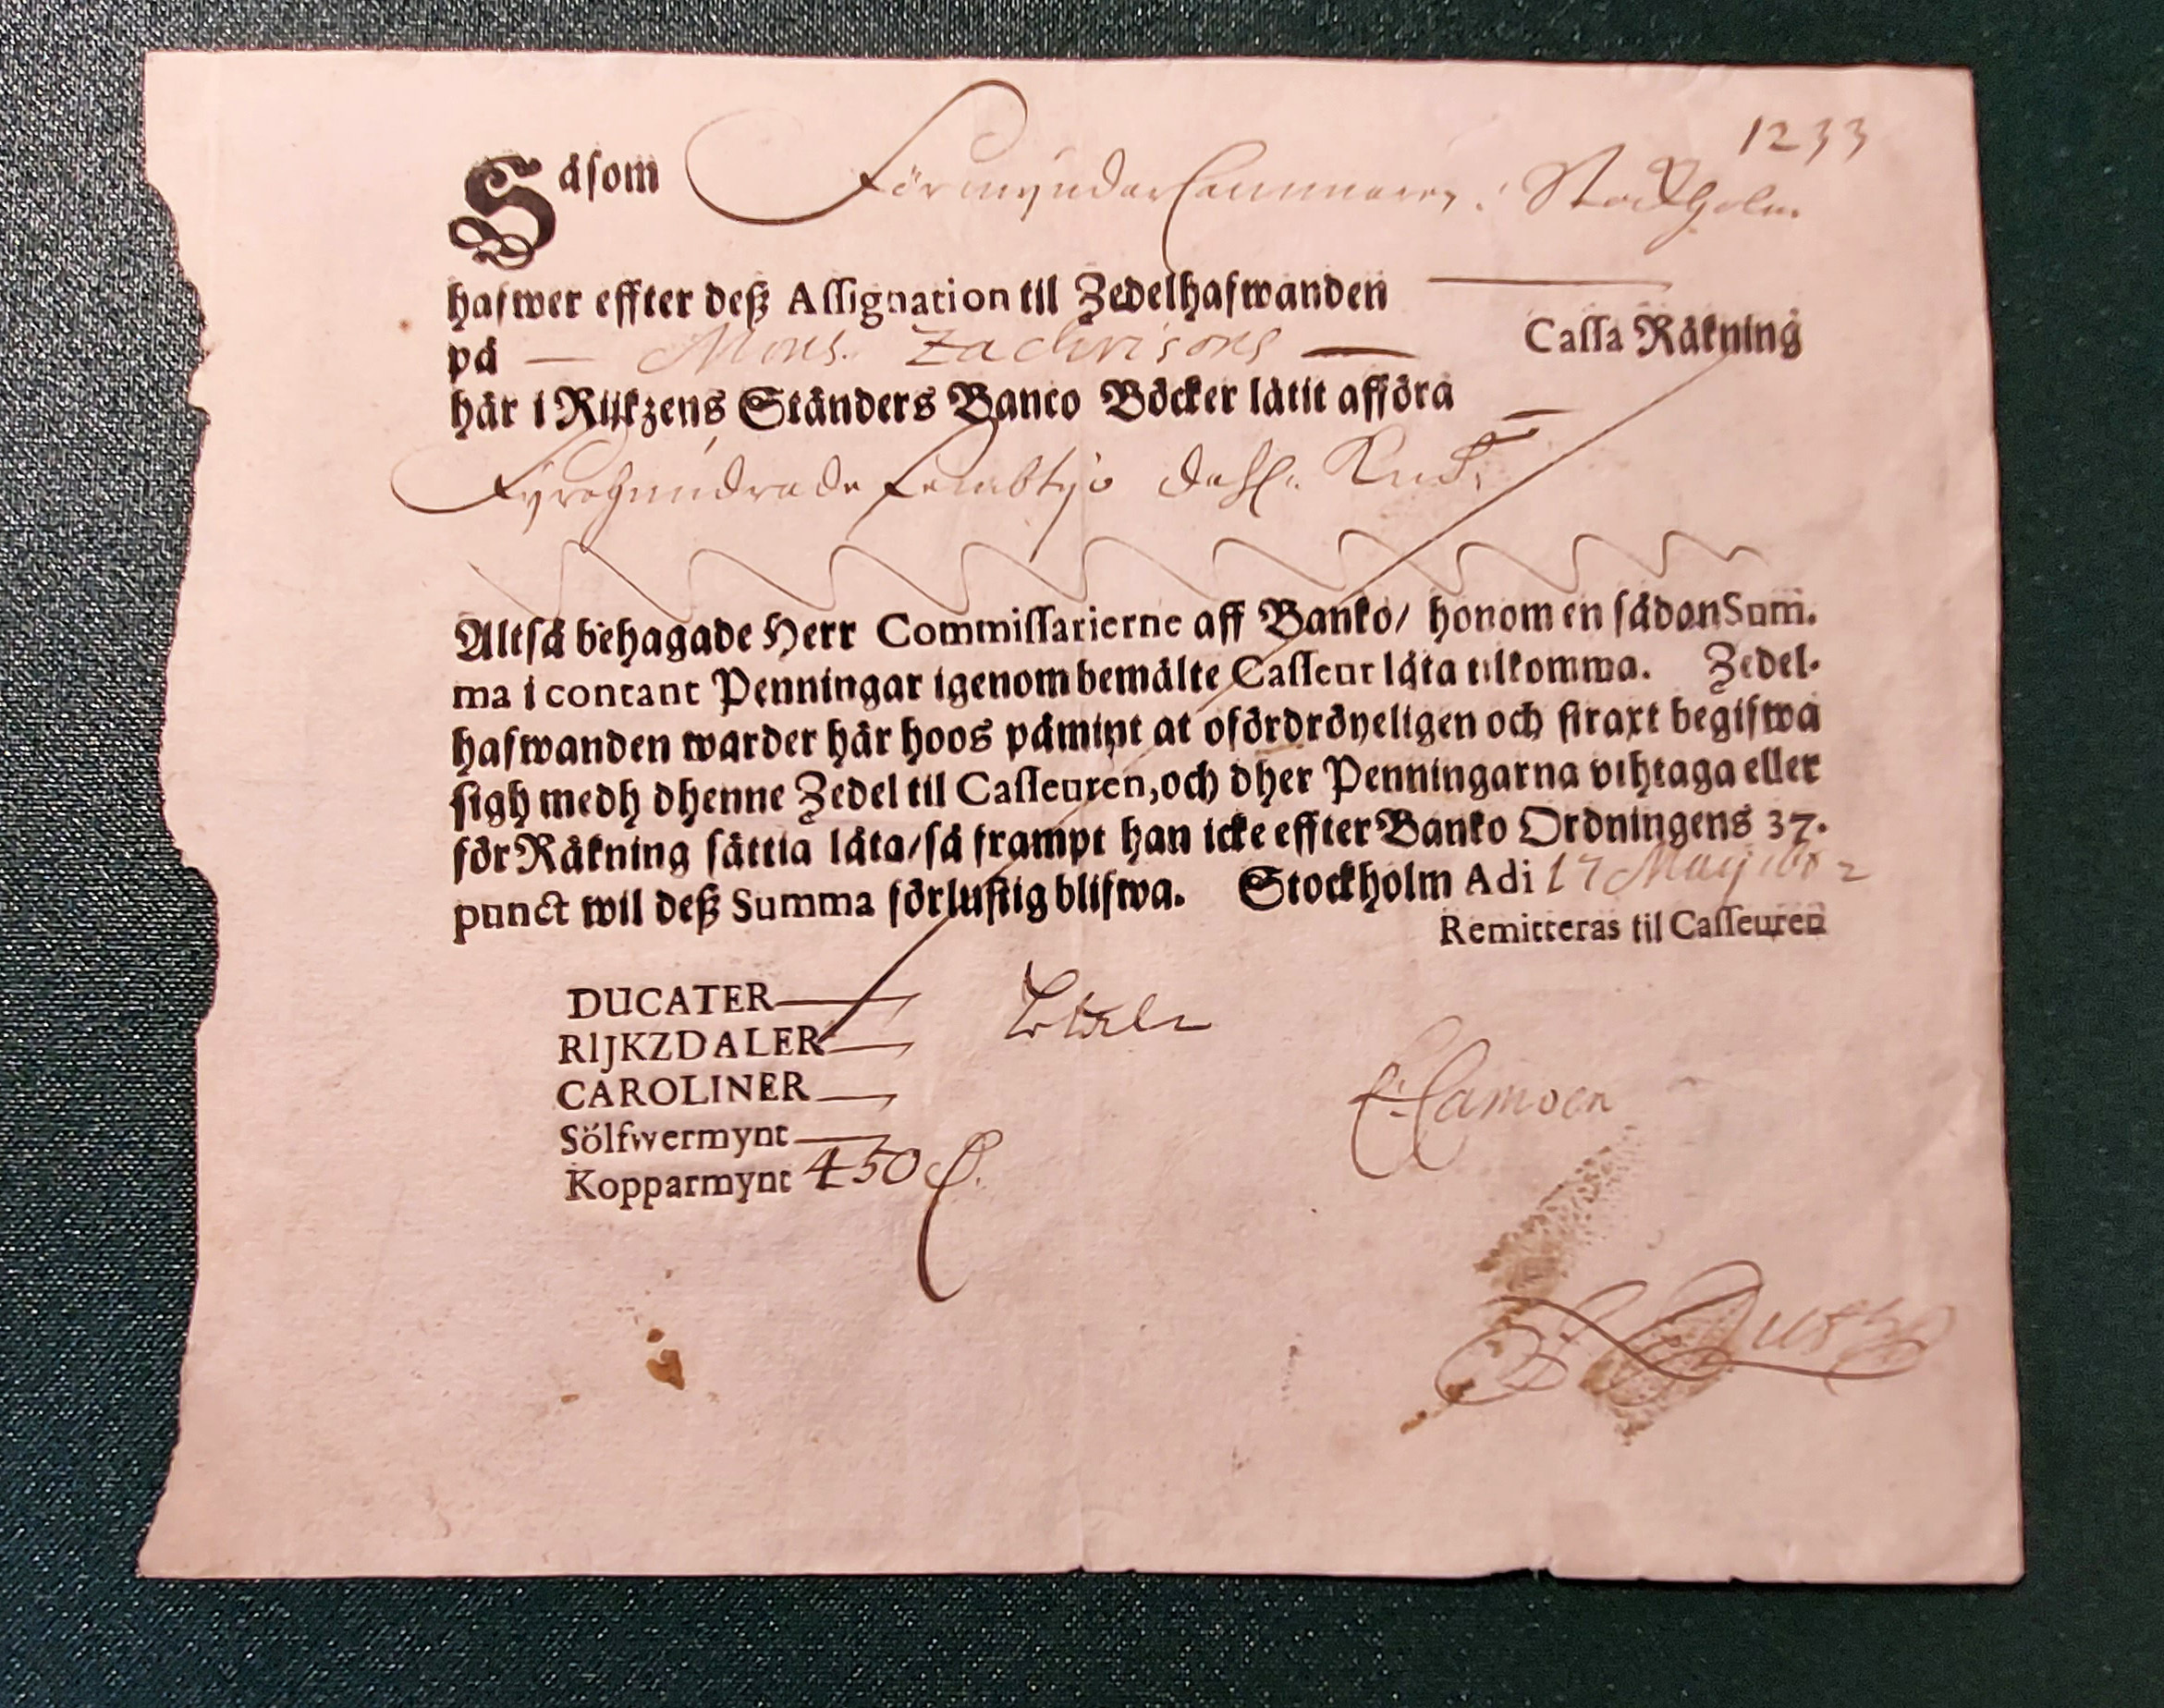 1233
Såsom Förmyndar Cammaren i Stockholm
hafwer effter deß Assignation til Zedelhafwanden
på — Mons. Zachrisons — Cassa Räkning
här i Rijkzens Ständers Banco Böcker låtit afföra
Fyrahundrade Fembtijo
Altså behagade Herr Commissarierne aff Banko/ honom en sådan Sum-
ma i contant Penningar igenom bemälte Casseur låta tilkomma. Zedel-
hafwanden warder här hoos påmint at ofördröyeligen och straxt begifwa
sigh medh dhenne Zedel til Casseuren, och dher Penningarna vthtaga eller
för Räkning sättia låta/ så frampt han icke effter Banko Ordningens 37.
punct wil deß Summa förlustig blifwa. Stockholm Adi 17 Maij
Remitteras til Casseuren
DUCATER
RIJKZDALER
CAROLINER
Sölfwermynt
Kopparmynt 450